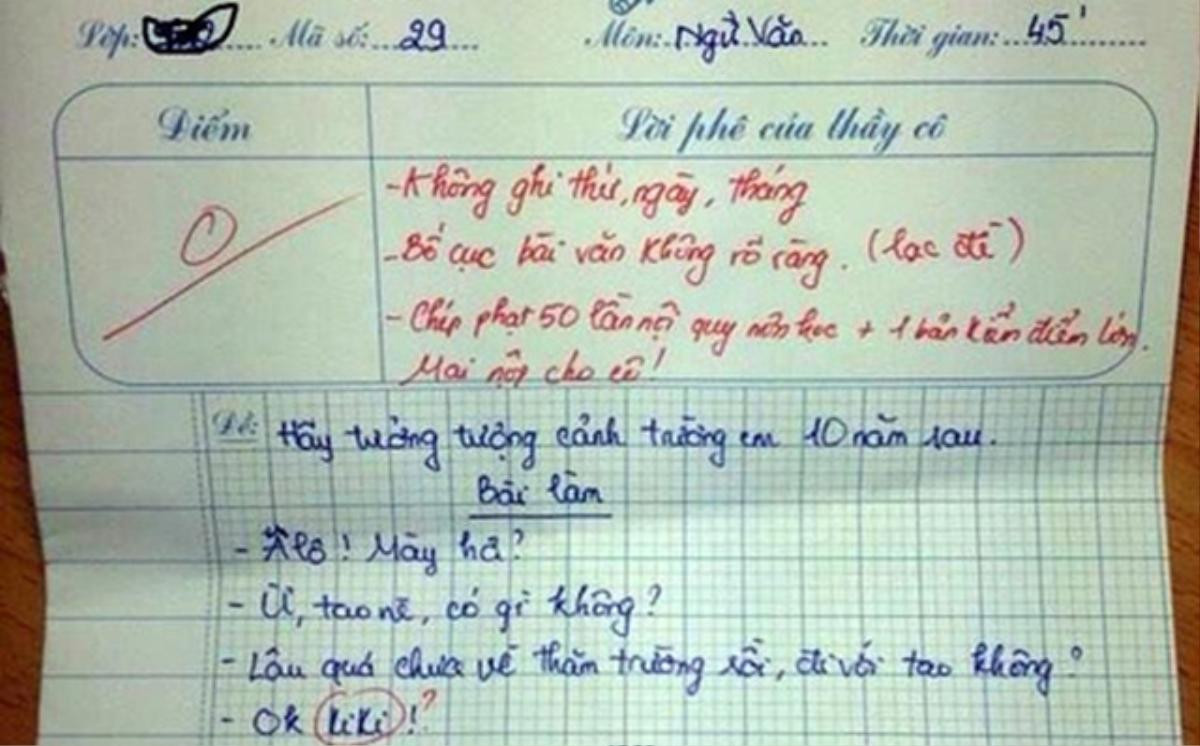 Lớp: Mã số: 29 Môn: Ngữ Văn Thời gian: 45'
Điểm Lời phê của thầy cô
0
- Không ghi thứ, ngày, tháng
- Bố cục bài văn không rõ ràng. (lạc đề)
- Chép phạt 50 lần nội quy môn học + 1 bản kiểm điểm lớn.
Mai nộp cho cô!
Đề: Hãy tưởng tượng cảnh trường em 10 năm sau.
Bài làm
- Ấlô! Mày hả?
- Ừ, tao nè, có gì không?
- Lâu quá chưa về thăm trường rồi, đi với tao không?
- Ok kiki!?